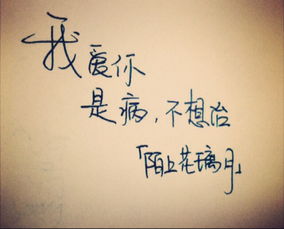 我爱你
是病，不想治
「陌上花璃月」